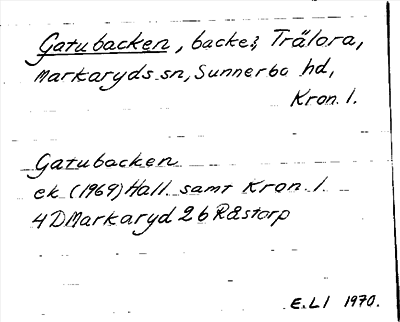 Gatubacken, backe; Trälora,
Markaryds sn, Sunnerbo hd,
Kron. l.
Gatubacken
ek (1969) Hall. samt Kron. l.
4D Markaryd 2b Råstorp
E.L! 1970.